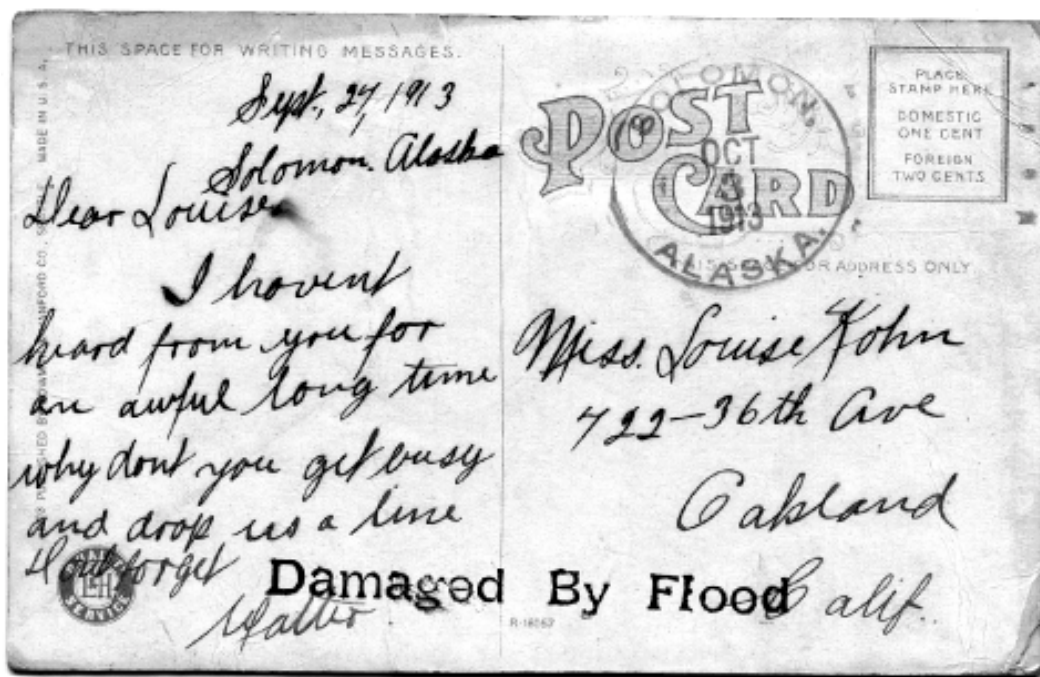 THIS SPACE FOR WRITING MESSAGES.
Sept. 27, 1913
Solomon. Alaska
Dear Louise
I havent
heard from you for
an awful long time
why dont you get busy
and drop us a line
Dont forget
MADE IN U.S.A.
POST CARD
SOLOMON,
OCT
1913
ALASKA.
PLACE
STAMP HERE
DOMESTIC
ONE CENT
FOREIGN
TWO CENTS
FOR ADDRESS ONLY
Miss. Louise Kohn
722-36th Ave
Oakland
Calif.
Damaged By Flood